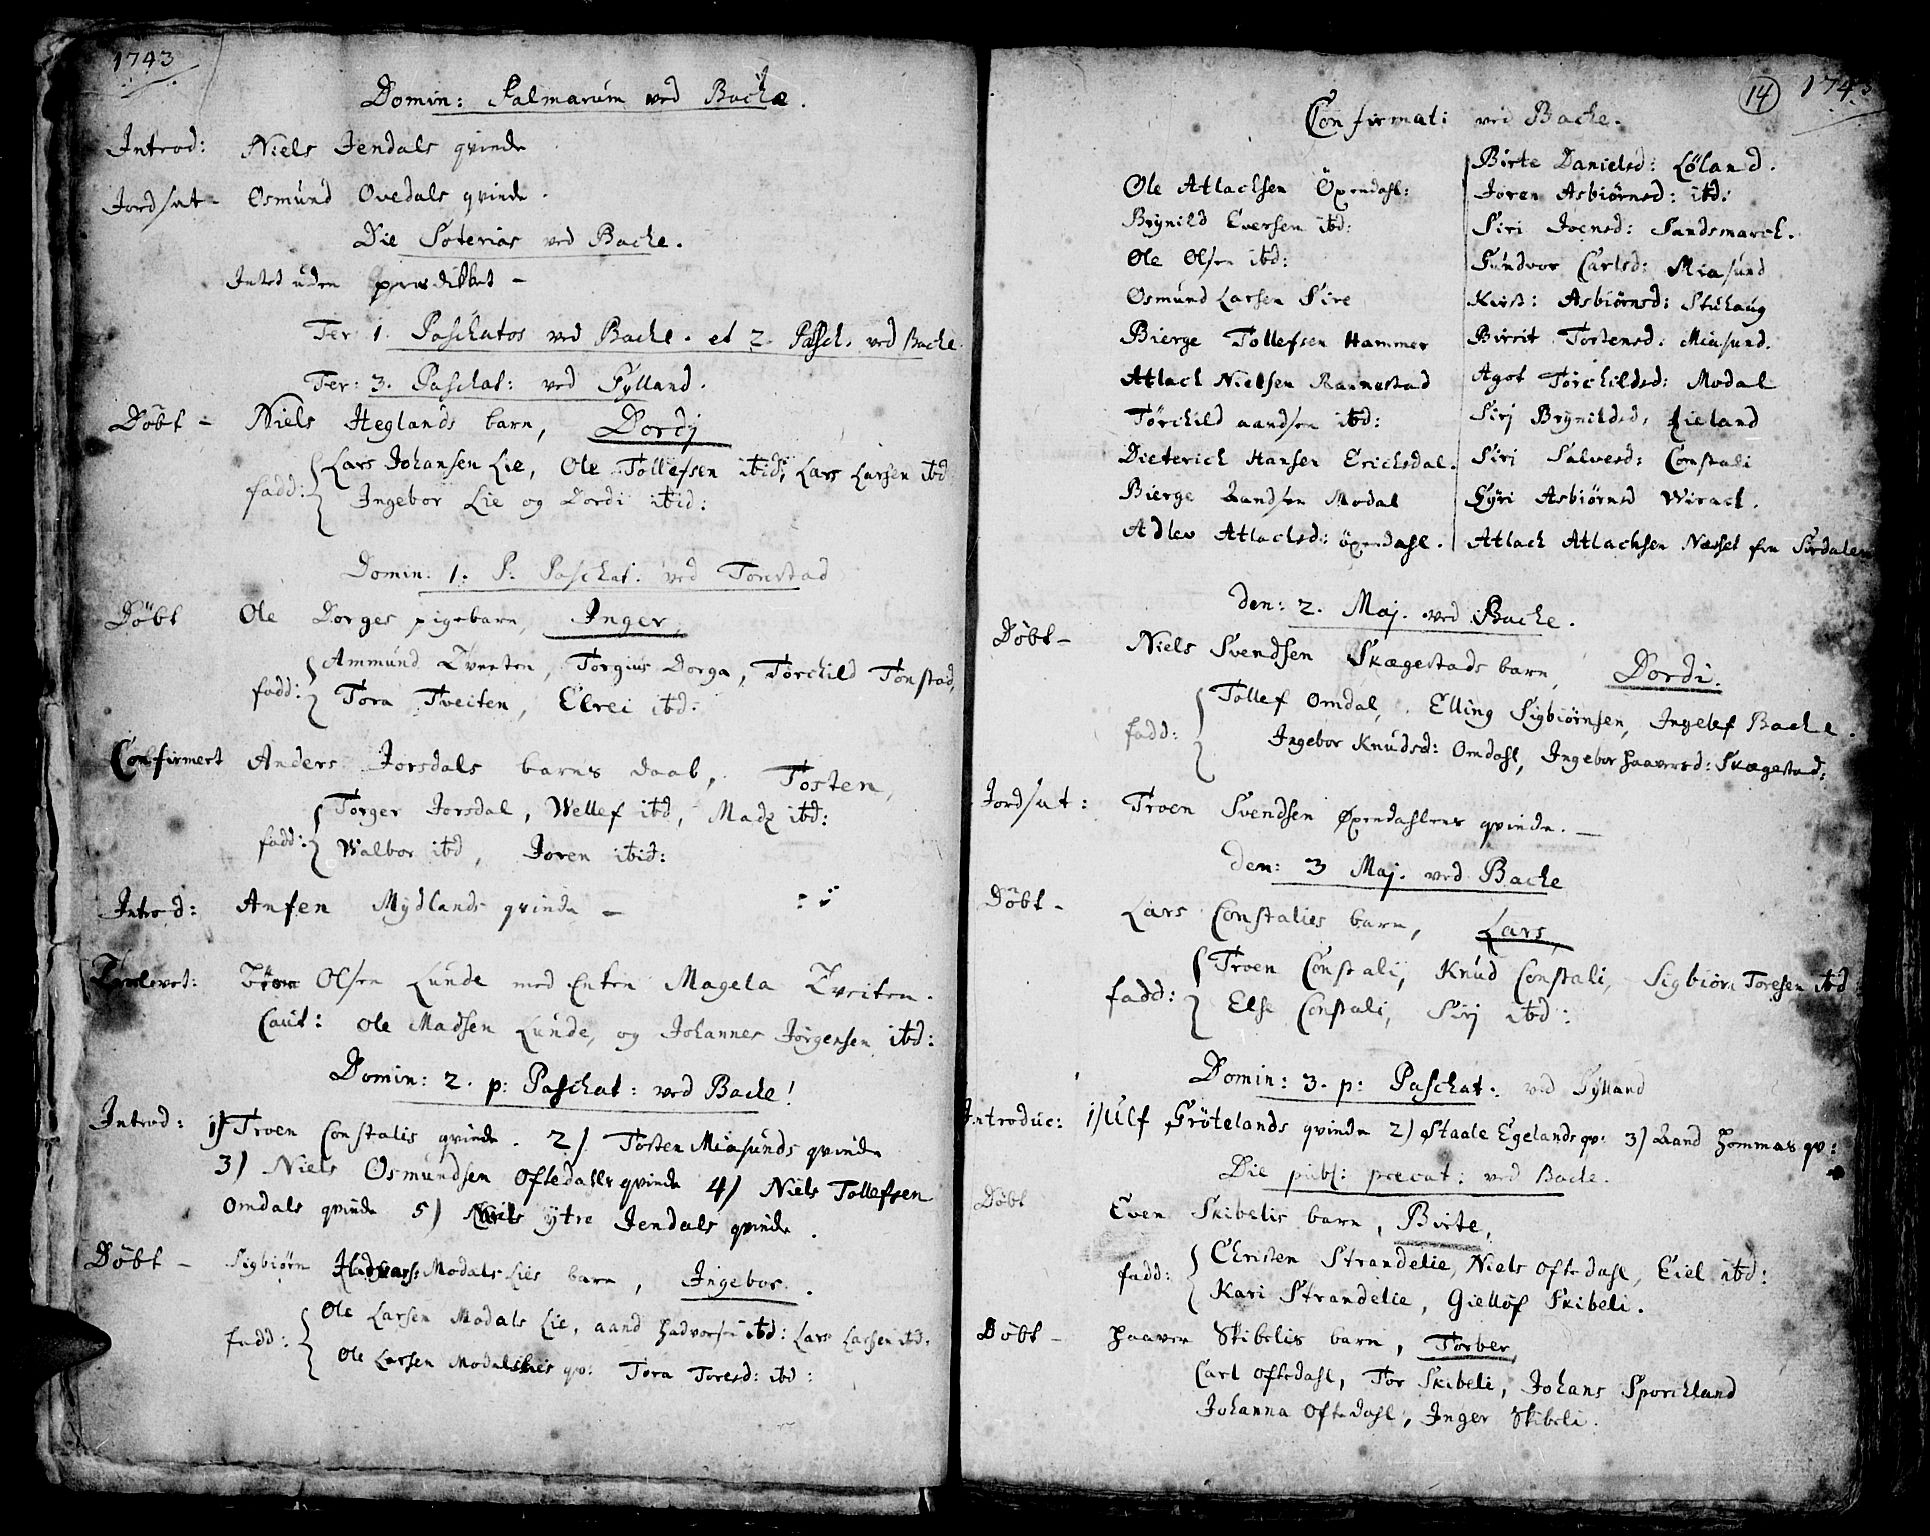 1743
Domin: Palmarum ved Bache.
Introd: Niels Jendals qvinde
Jordsat - Osmund Ovedals qvinde.
Die Soterias ved Bache.
Intet uden prædiket -
Fer 1. Paschatos ved Bache. et 2. Pasch. ved Bache.
Fer: 3. Paschat: ved Fylland.
Døbt - Niels Heglands barn, Dordj
fadd: Lars Johansen Lie, Ole Tollefsen ibid; Lars Larsen ibd
Ingebor Lie og Dordi ibid:
Domin: 1. P: Paschat: ved Tonstad
Døbt Ole Dorges pigebarn, Inger,
fadd: Ammund Tveiten, Torgius Dorga, Torchild Tonstad,
Tora Tveiten, Elrei ibd:
Confirmert Anders Josdals barns daab, Tosten,
fadd: Torger Josdal, Wellef ibd, Madz ibd:
Walbor ibd, Joren ibid:
Introd: Anfen Mydlands qvinde -
Trolovet: Olsen Lunde med Enken Magela Tveiten.
Caut: Ole Madsen Lunde, og Johannes Jørgensen ibd:
Domin: 2. p: Paschat: ved Bache!
Introd: 1) Troen Constalis qvinde. 2) Tosten Miasunds qvinde
3) Niels Osmundsen Oftedahls qvinde 4) Niels Tollefsen
Omdals qvinde 5) Niels ytre Jendals qvinde.
Døbt - Sigbiørn Modals Lies barn, Ingebor.
fadd: Ole Larsen Modals Lie, aand Hadvorsen ibd: Lars Larsen ibd:
Ole Larsen Modals Lies qv: Tora Toresd: ibd:
14 1743
Confirmati ved Bache.
Ole Atlachsen Öxendahl:
Brynild Eversen ibd:
Ole Olsen ibd:
Osmund Larsen Sire
Bierge Tollefsen Hammer
Atlach Nielsen Rannestad
Törchild aandsen ibd:
Dieterich Hansen Erichsdal.
Bierge Aandsen Modal
Adlev Atlachsd: öxendahl.
Birte Danielsd: Løland.
Joren Asbiørnsd: ibd:
Siri Joensd: Sandsmarch.
Gundvor Carlsd: Miasund
Kirst: Asbiørnsd: Stuhaug
Birrit Tostensd: Miasund.
Agot Torchildsd: Modal
Sirj Brynildsd: Lieland
Siri Salvesd: Constali
Gyri Asbiørnsd Wirach.
Atlach Atlachsen Næsset fra Sirdalen
den: 2. Maj. ved Bache.
Døbt - Niels Svendsen Skægestads barn, Dordi.
fadd: Tollef Omdal, Elling Sigbiørnsen, Ingelef Bache.
Ingebor Knudsd: Omdahl, Ingebor Haaversd: Skægestad:
Jordsat: Troen Svendsen Øxendahlens qvinde. -
den: 3 Maj. ved Bache
Döbt - Lars Constalies barn, Lars,
fadd: Troen Constali, Knud Constali, Sigbiørn Toresen ibd
Else Constali, Sirj ibd:
Domin: 3. p: Paschat: ved Fylland
Introduc: 1) Ulf Frötelands qvinde 2) Staale Egelands qv: 3) Aand Hommas qv:
Die publ: precat: ved Bache.
Døbt Even Skibelis barn, Birte,
fadd: Christen Strandelie, Niels Oftedahl, Eiel ibd:
Kari Strandelie, Giellöf Skibeli.
Døbt - Haaver Skibelis barn, Torber,
Carl Oftedahl, Tor Skibeli, Johans Sporchland
Johanna Oftedahl, Inger Skibeli.